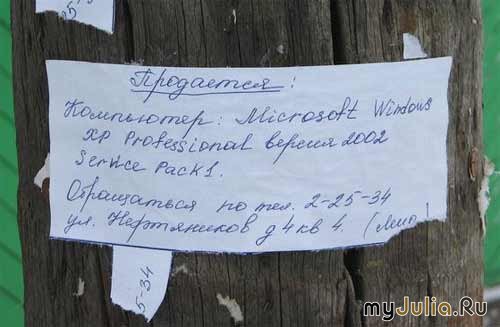 25-
Продается:
Компьютер: Microsoft Windows
XP Professional версия 2002
Service Pack 1.
Обращаться по тел. 2-25-34
ул. Нефтяников д 4 кв 4.
5-34
myJulia.Ru